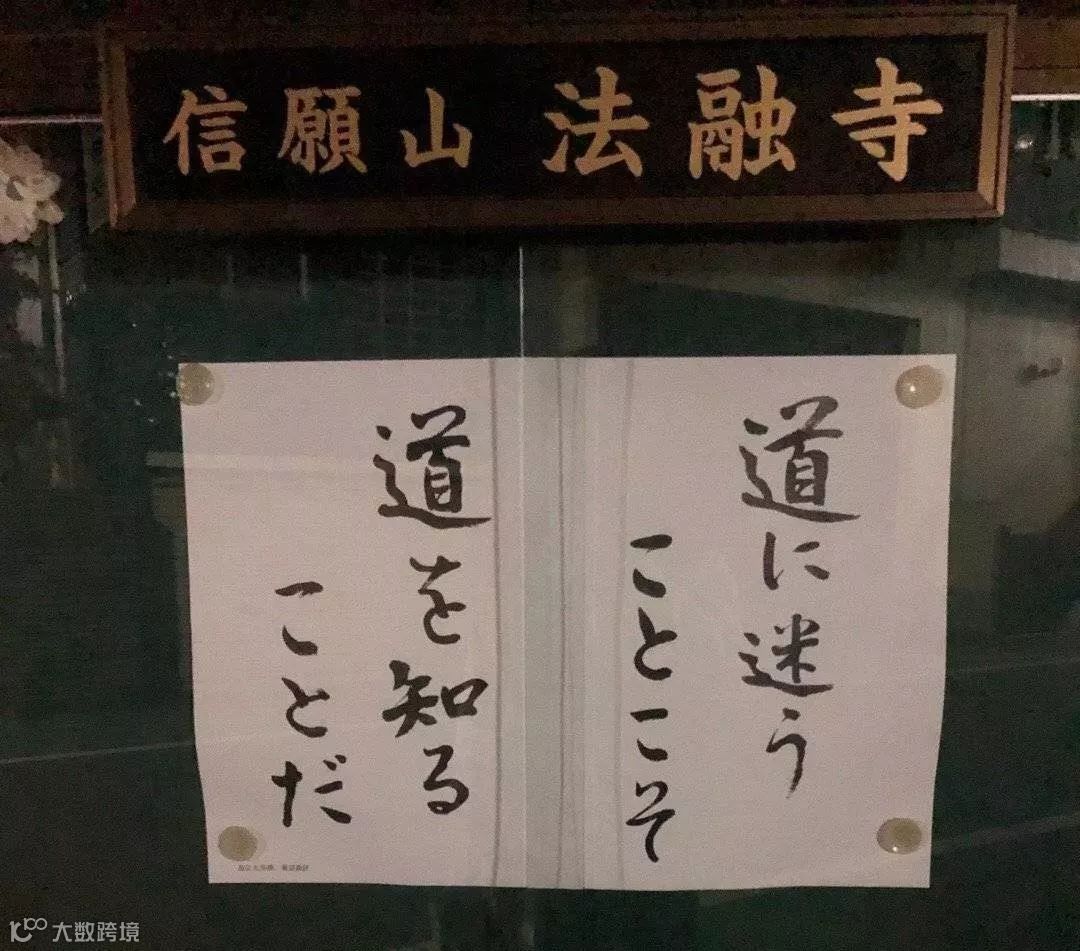 信願山 法融寺
道に迷う
ことこそ
道を知る
ことだ
大数跨境